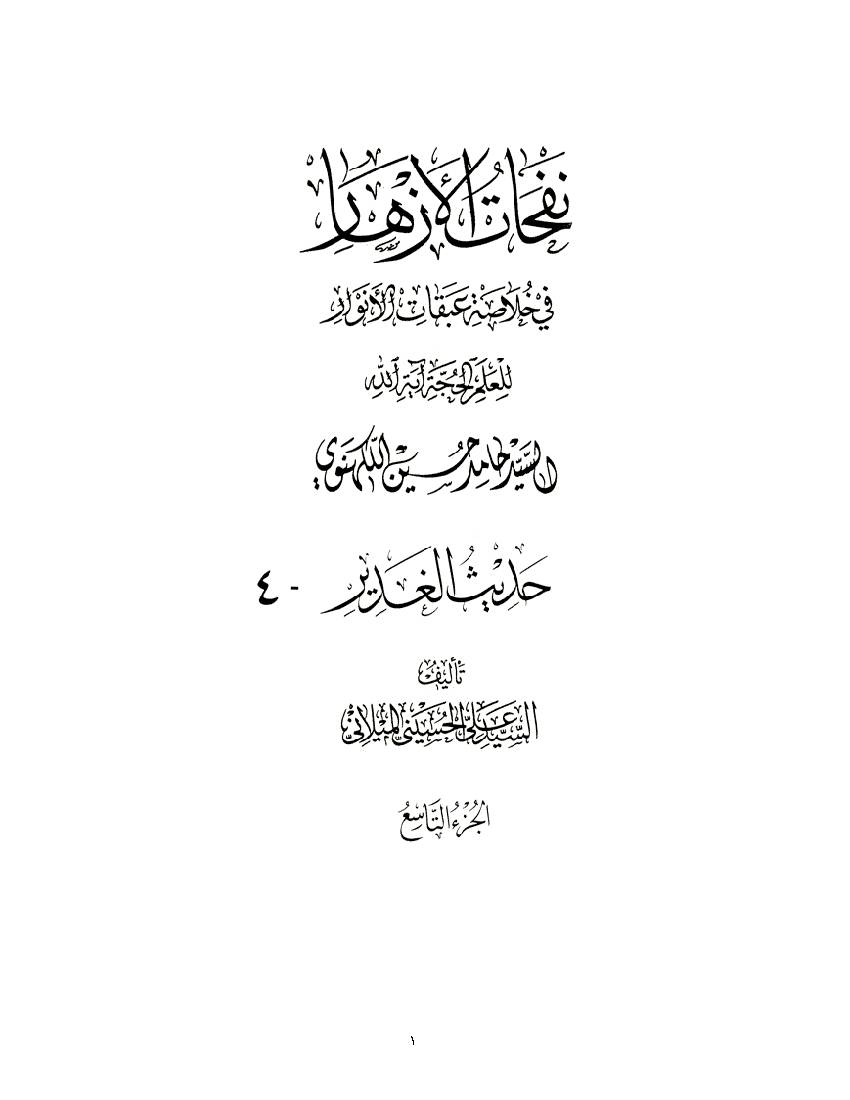 نَفَحَاتُ الأَزْهَارِ
فِي خُلَاصَةِ عَبَقَاتِ الأَنْوَارِ
لِلْعَلَمِ الحُجَّةِ آيَةِ اللهِ
السَّيِّد حَامِد حُسَيْن اللَّكهنَوِي
حَدِيثُ الغَدِيرِ - ٤
تَأْلِيفُ
السَّيِّد عَلِيّ الحُسَيْنِيّ المِيْلَانِيّ
الجُزْءُ التَّاسِعُ
١